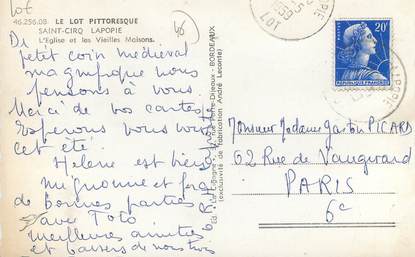 Lot
46.256.08 LE LOT PITTORESQUE
SAINT-CIRQ LAPOPIE
L'Église et les Vieilles Maisons.
Du
petit coin médiéval
magnifique nous
pensons à vous.
Merci de vos cartes
Espérons vous
cet été.
Hélène est bien
mignonne et
de bonnes parties
avec Toto
meilleures amitiés
et baisers de nous trois
BORDEAUX
(exclusivité de fabrication André Leconte)
LOT
20F
Monsieur Madame Gaston PICARD
62 Rue de Vaugirard
PARIS
6e